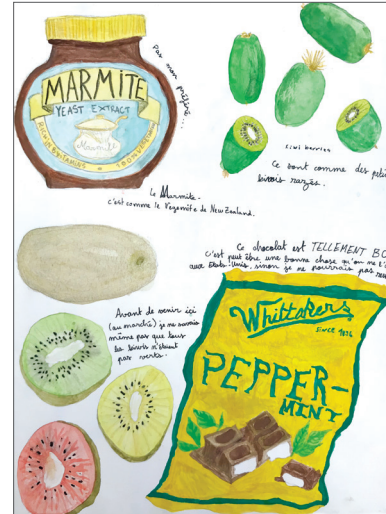 MARMITE
YEAST EXTRACT
Marmite
Pas mon préféré...
Le Marmite.
c'est comme le Vegemite de New Zealand.
kiwi berries
Ce sont comme des
kiwis rasés.
Ce chocolat est TELLEMENT
c'est peut être une bonne chose qu'on ne
aux États-Unis, sinon je ne pourrais pas
Avant de venir ici
(au marché) je ne savais
même pas que tous
les kiwis n'étaient
pas verts.
Whittakers
SINCE 1896
PEPPER-
MINT